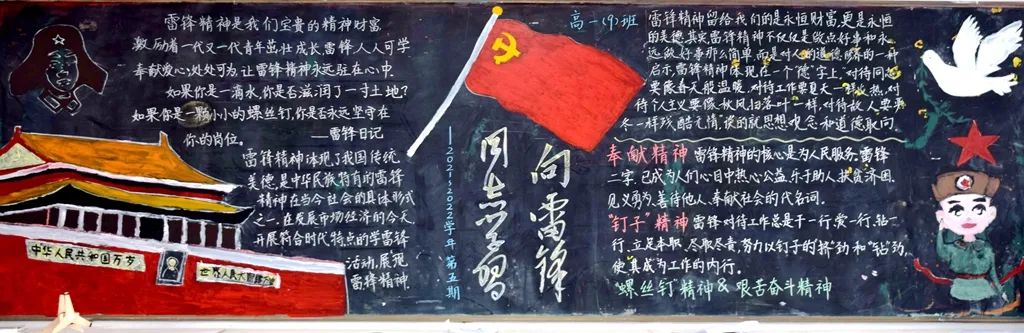 雷锋精神是我们宝贵的精神财富
激励着一代又一代青年茁壮成长,雷锋,人人可学
奉献爱心,处处可为,让雷锋精神永远驻在心中.
如果你是一滴水,你是否滋润了一寸土地?
如果你是一颗小小的螺丝钉,你是否永远坚守在
你的岗位。
——雷锋日记
雷锋精神体现了我国传统
美德,是中华民族特有的雷锋
精神在当今社会的具体形式
之一.在发展市场经济的今天
开展符合时代特点的学雷锋
活动,展现
雷锋精神.
中华人民共和国万岁
世界人民大团结万岁
——2021~2022学年 第五期
向雷锋
同志学习
高一(9)班
雷锋精神留给我们的是永恒财富,更是永恒
的美德,其实雷锋精神不仅仅是做点好事和永
远做好事那么简单,而是对人的道德修养的一种
启示.雷锋精神体现在一个"德"字上,对待同志
要像春天般温暖,对待工作要夏天一样火热,对
待个人主义要像秋风扫落叶一样,对待敌人要严
冬一样残酷无情,谈的就思想观念和道德取向
奉献精神 雷锋精神的核心是为人民服务.雷锋
二字,已成为人们心目中热心公益,乐于助人,扶贫济困,
见义勇为,善待他人,奉献社会的代名词.
"钉子"精神 雷锋对待工作总是干一行,爱一行,钻一
行,立足本职,尽职尽责,努力以钉子的"挤"劲和"钻"劲,
使其成为工作的内行.
"螺丝钉"精神 & 艰苦奋斗精神